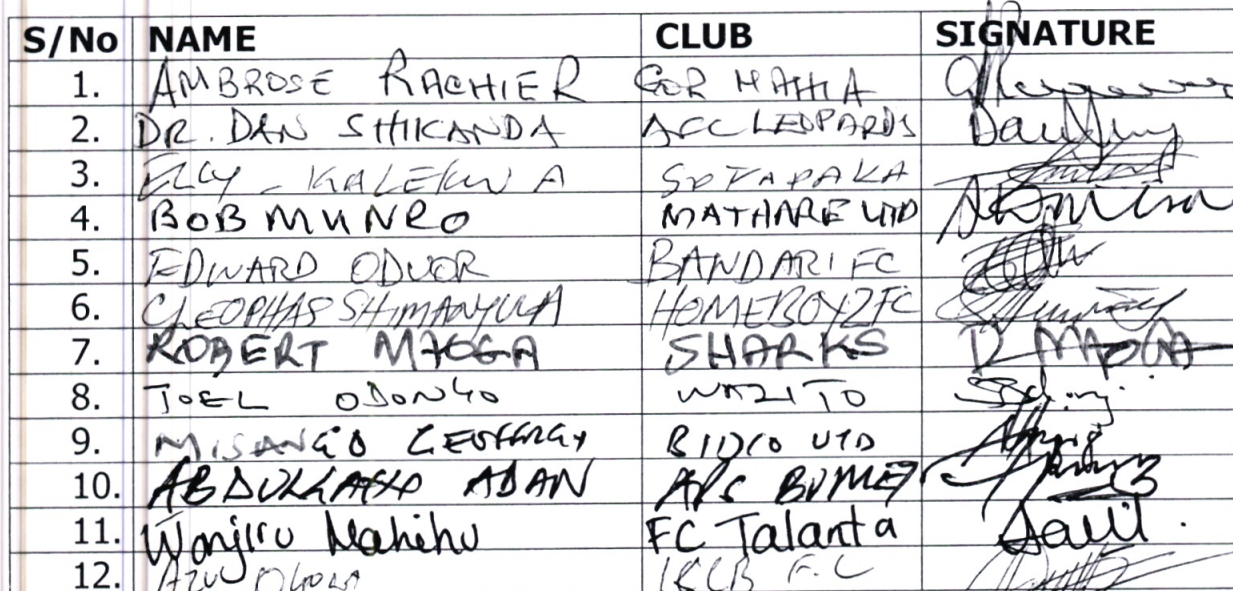 S/No NAME CLUB SIGNATURE
1. AMBROSE RACHIER GOR MAHIA
2. DR. DAN SHIKANDA AFC LEOPARDS
3. ELLY - KALEKWA SOFAPAKA
4. BOB MUNRO MATHARE UTD
5. EDWARD ODUOR BANDARI FC
6. CLEOPHAS SHIMANYULA HOMEBOYZ FC
7. ROBERT MAOGA SHARKS R MAOGA
8. JOEL ODONGO WAZITO
9. MISANGO GEOFFREY BIDCO UTD
10. ADAN APS BOMET
11. Wanjiru Mahihu FC Talanta
12. KCB F.C